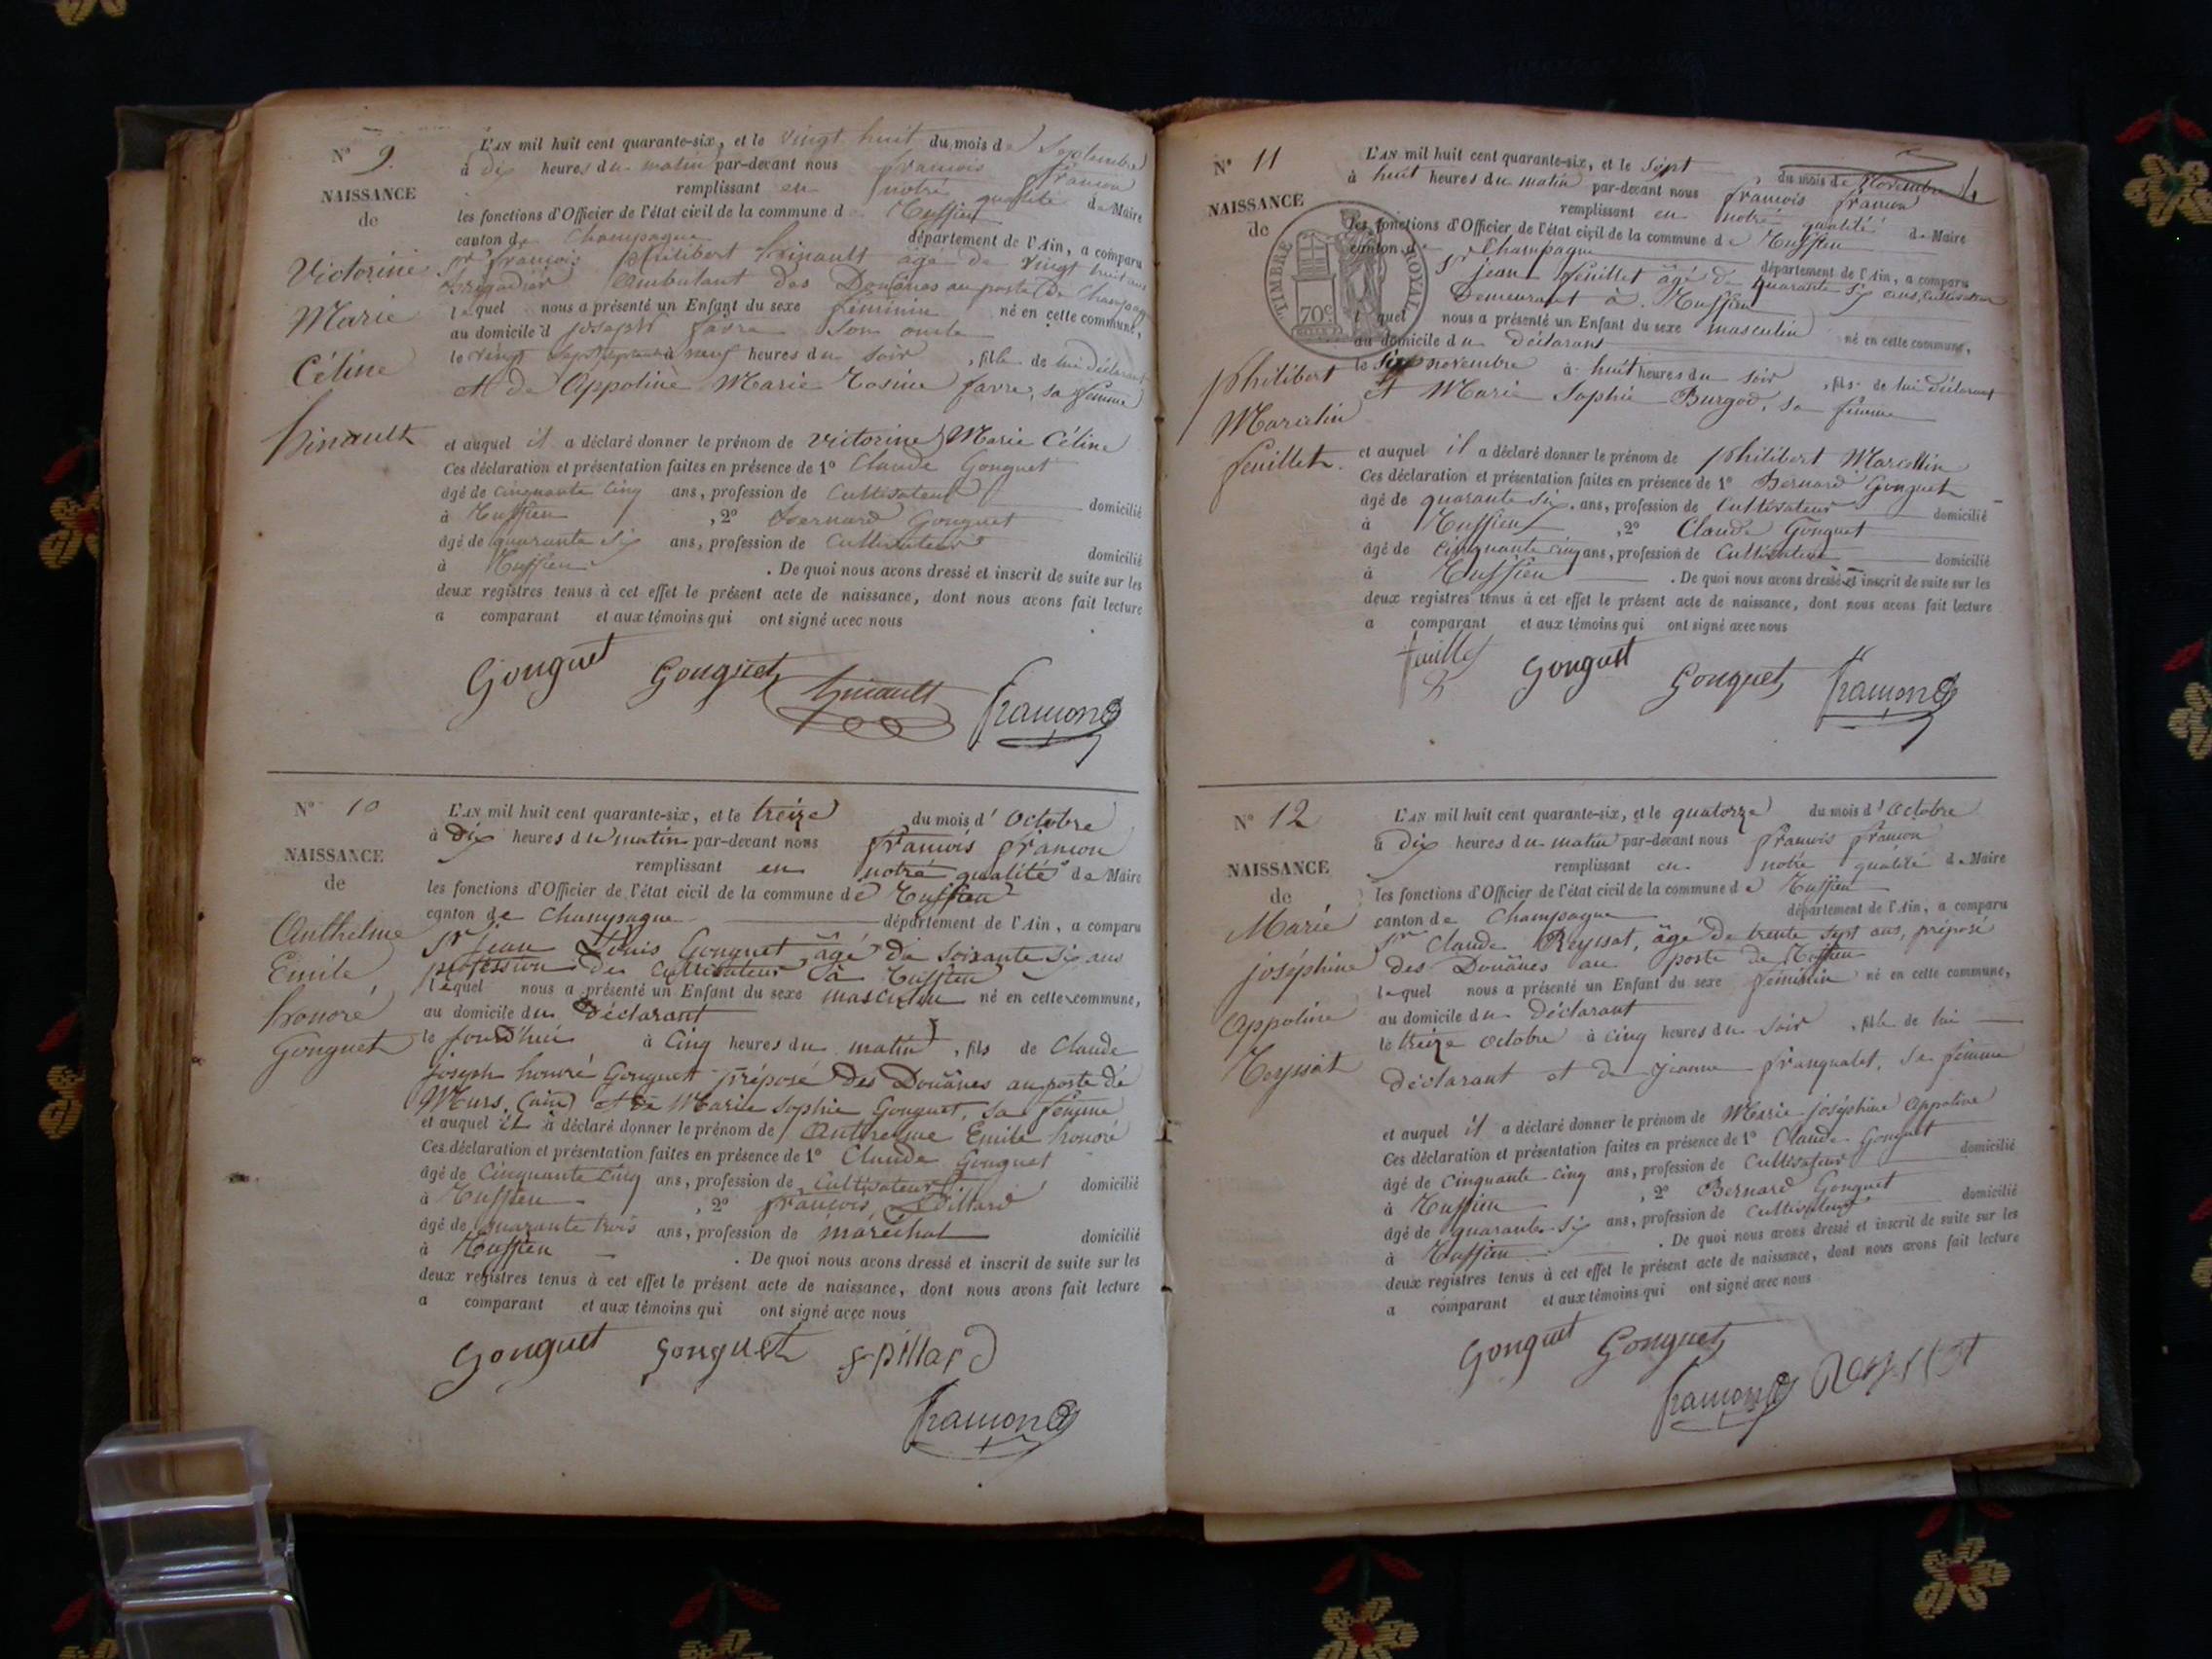 N° 9.
NAISSANCE
de
Victorine
Marie
Céline
hinault
L'AN mil huit cent quarante-six, et le vingt huit du mois de Septembre
à dix heures du matin par-devant nous francois francon
remplissant en notre qualité de Maire
les fonctions d'Officier de l'état civil de la commune de
canton de Champagne département de l'Ain, a comparu
Sr francois philibert hinault agé de vingt huit ans
brigadier Ambulant des Douânes au poste de Champagne
lequel nous a présenté un Enfant du sexe féminin né en cette commune,
au domicile d joseph favre son oncle
le vingt sept à neuf heures du soir , fille de lui déclarant
et de Appoline Marie favre, sa femme
et auquel il a déclaré donner le prénom de victorine Marie Céline
Ces déclaration et présentation faites en présence de 1° Claude Gonguet
âgé de cinquante cinq ans, profession de Cultivateur domicilié
à , 2° Bernard Gonguet
âgé de quarante six ans, profession de Cultivateur domicilié
à . De quoi nous avons dressé et inscrit de suite sur les
deux registres tenus à cet effet le présent acte de naissance, dont nous avons fait lecture
a comparant et aux témoins qui ont signé avec nous
Gonguet Gonguet hinault francon
N° 10
NAISSANCE
de
Anthelme
Emile
honoré
Gonguet
L'AN mil huit cent quarante-six, et le treize du mois d'Octobre
à Dix heures du matin par-devant nous francois francon
remplissant en notre qualité de Maire
les fonctions d'Officier de l'état civil de la commune de
canton de Champagne département de l'Ain, a comparu
Sr jean Louis Gonguet âgé de soixante six ans
profession de Cultivateur à
lequel nous a présenté un Enfant du sexe masculin né en cette commune,
au domicile du Déclarant
le jourd'hui à cinq heures du matin , fils de Claude
joseph honoré Gonguet préposé Des Douânes au poste de
Murs, (ain) et de Marie Sophie Gonguet, sa femme
et auquel il a déclaré donner le prénom de Anthelme Emile honoré
Ces déclaration et présentation faites en présence de 1° Claude Gonguet
âgé de Cinquante cinq ans, profession de Cultivateur domicilié
à , 2° francois
âgé de quarante trois ans, profession de maréchal domicilié
à . De quoi nous avons dressé et inscrit de suite sur les
deux registres tenus à cet effet le présent acte de naissance, dont nous avons fait lecture
a comparant et aux témoins qui ont signé avec nous
Gonguet Gonguet
francon
N° 11
NAISSANCE
de
TIMBRE ROYAL
70c
philibert
Marcelin
feuillet.
L'AN mil huit cent quarante-six, et le sept du mois de Novembre
à huit heures du matin par-devant nous francois francon
remplissant en notre qualité de Maire
les fonctions d'Officier de l'état civil de la commune de
canton de Champagne département de l'Ain, a comparu
Sr jean feuillet âgé de quarante six ans, cultivateur
Demeurant à
lequel nous a présenté un Enfant du sexe masculin né en cette commune,
au domicile du déclarant
le six novembre à huit heures du soir , fils de lui déclarant
et Marie Sophie Burgod, sa femme
et auquel il a déclaré donner le prénom de philibert Marcellin
Ces déclaration et présentation faites en présence de 1° Bernard Gonguet
âgé de quarante six ans, profession de Cultivateur domicilié
à , 2° Claude Gonguet
âgé de Cinquante cinq ans, profession de Cultivateur domicilié
à . De quoi nous avons dressé et inscrit de suite sur les
deux registres tenus à cet effet le présent acte de naissance, dont nous avons fait lecture
a comparant et aux témoins qui ont signé avec nous
feuillet Gonguet Gonguet francon
N° 12
NAISSANCE
de
Marie
joséphine
Appoline
Reyssat
L'AN mil huit cent quarante-six, et le quatorze du mois d'Octobre
à Dix heures du matin par-devant nous francois francon
remplissant en notre qualité de Maire
les fonctions d'Officier de l'état civil de la commune de
canton de Champagne département de l'Ain, a comparu
Sr Claude Reyssat, âgé de trente sept ans, préposé
des Douânes au poste de
lequel nous a présenté un Enfant du sexe féminin né en cette commune,
au domicile du Déclarant
le treize Octobre à cinq heures du soir , fille de lui
déclarant et de jeanne sa femme
et auquel il a déclaré donner le prénom de Marie joséphine Appoline
Ces déclaration et présentation faites en présence de 1° Claude Gonguet
âgé de cinquante cinq ans, profession de Cultivateur domicilié
à , 2° Bernard Gonguet
âgé de quarante six ans, profession de Cultivateur domicilié
à . De quoi nous avons dressé et inscrit de suite sur les
deux registres tenus à cet effet le présent acte de naissance, dont nous avons fait lecture
a comparant et aux témoins qui ont signé avec nous
Gonguet Gonguet
francon Reyssat